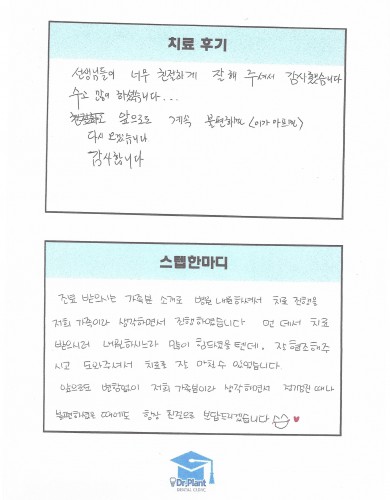 치료 후기
선생님들이 너무 친절하게 잘 해 주셔서 감사했습니다
수고 많이 하셨습니다...
앞으로도 계속 불편하면 (이가 아프면)
다시 오겠습니다
감사합니다
스탭한마디
진료 받으시는 가족분 소개로 병원 내원하셔서 치료 진행을
저희 가족이라 생각하면서 진행하였습니다 먼 데서 치료
받으시러 내원하시느라 많이 힘드셨을텐데, 잘 협조해주
시고 도와주셔서 치료를 잘 마칠수 있었습니다.
앞으로도 변함없이 저희 가족분이라 생각하면서 정기검진 때나
불편하셨던 때에도 항상 친절으로 보답하겠습니다
Dr.Plant
DENTAL CLINIC